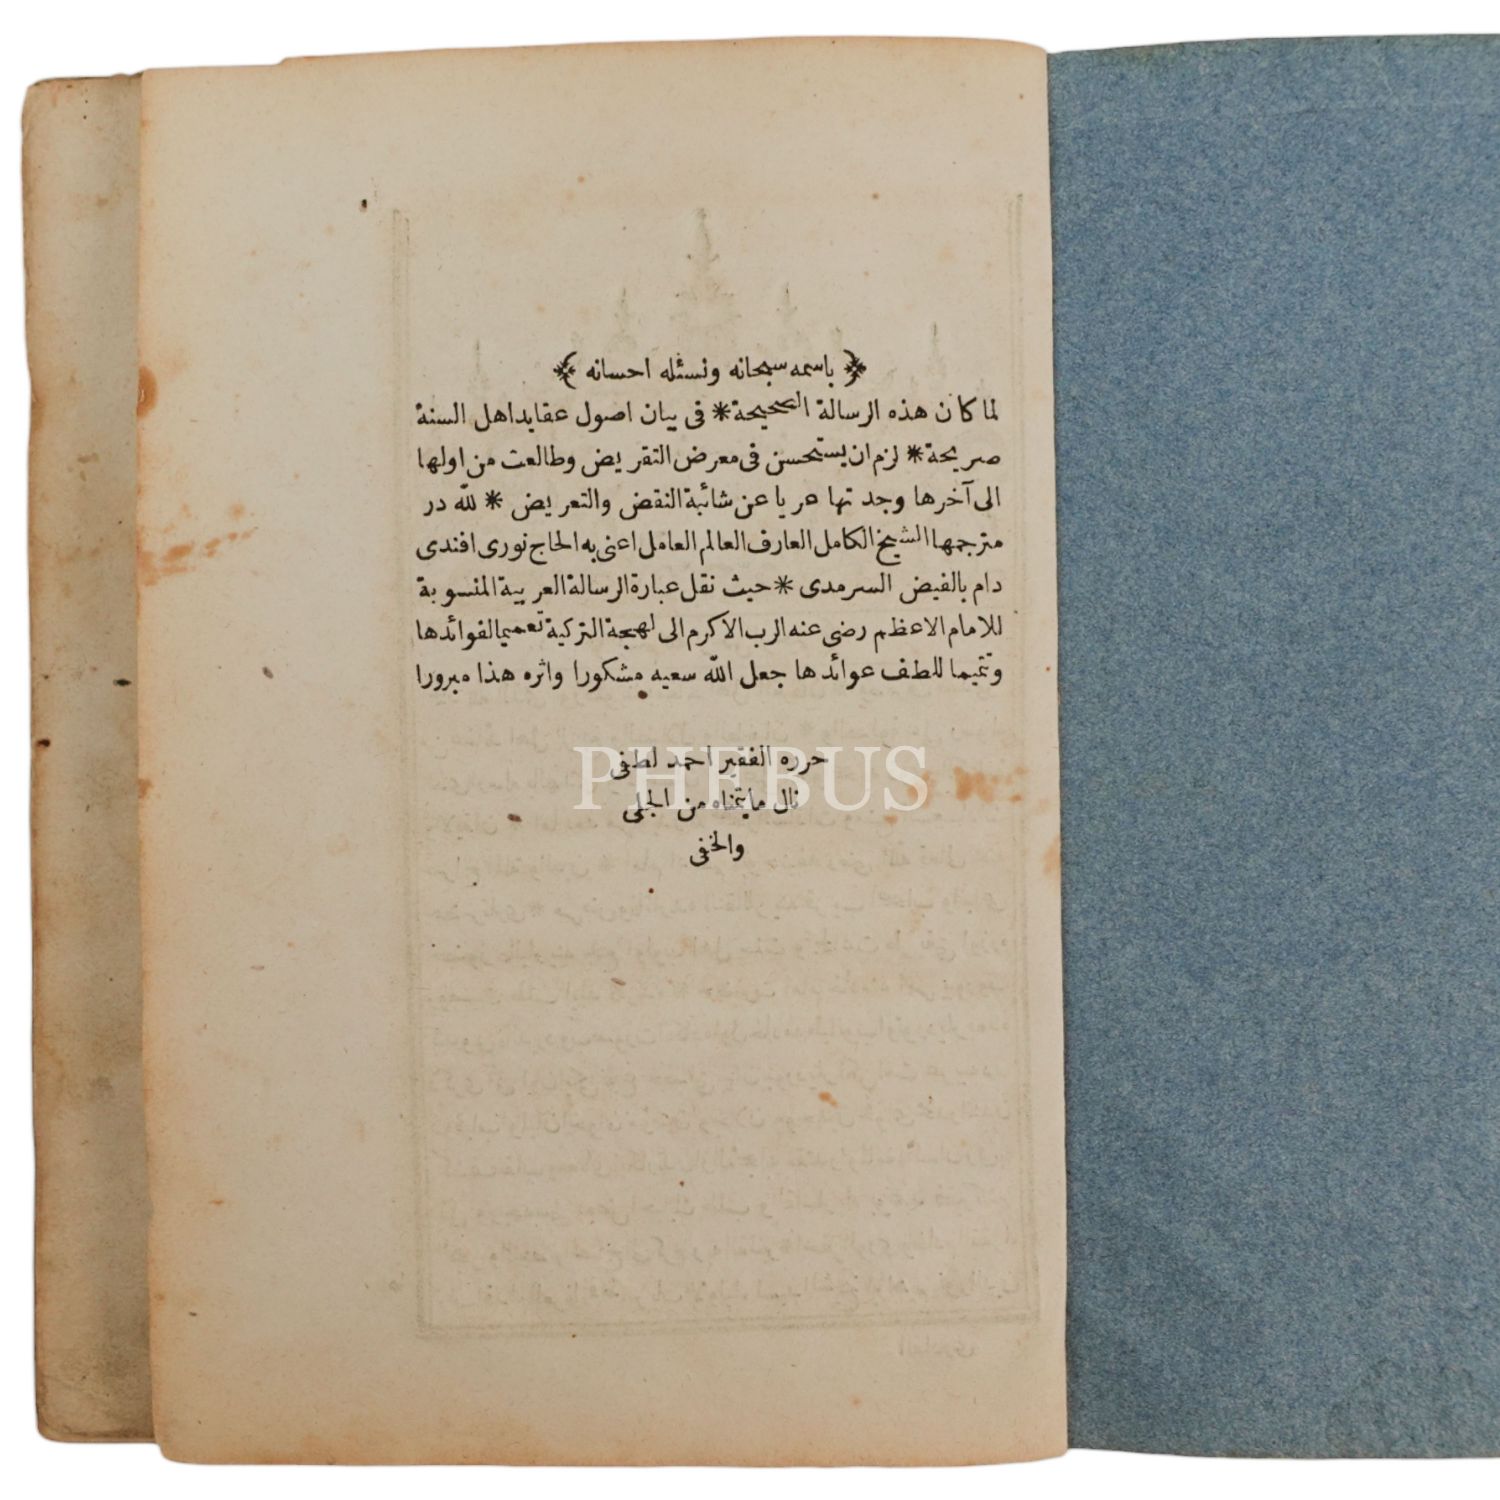 ﴿ باسمه سبحانه ونسئله احسانه ﴾
لما كان هذه الرسالة الصحيحة * فى بيان اصول عقايد اهل السنة
صريحة * لزم ان يستحسن فى معرض التقريض وطالعت من اولها
الى آخرها وجدتها عريا عن شائبة النقض والتعريض * لله در
مترجمها الشيخ الكامل العارف العالم العامل اعنى به الحاج نورى افندى
دام بالفيض السرمدى * حيث نقل عبارة الرسالة العربية المنسوبة
للامام الاعظم رضى عنه الرب الاكرم الى لهجة التركية تعميما لفوائدها
وتتميما للطف عوائدها جعل الله سعيه مشكورا واثره هذا مبرورا
حرره الفقير احمد لطفى
نال ما يتمناه من الجلى
والخفى
PHEBUS